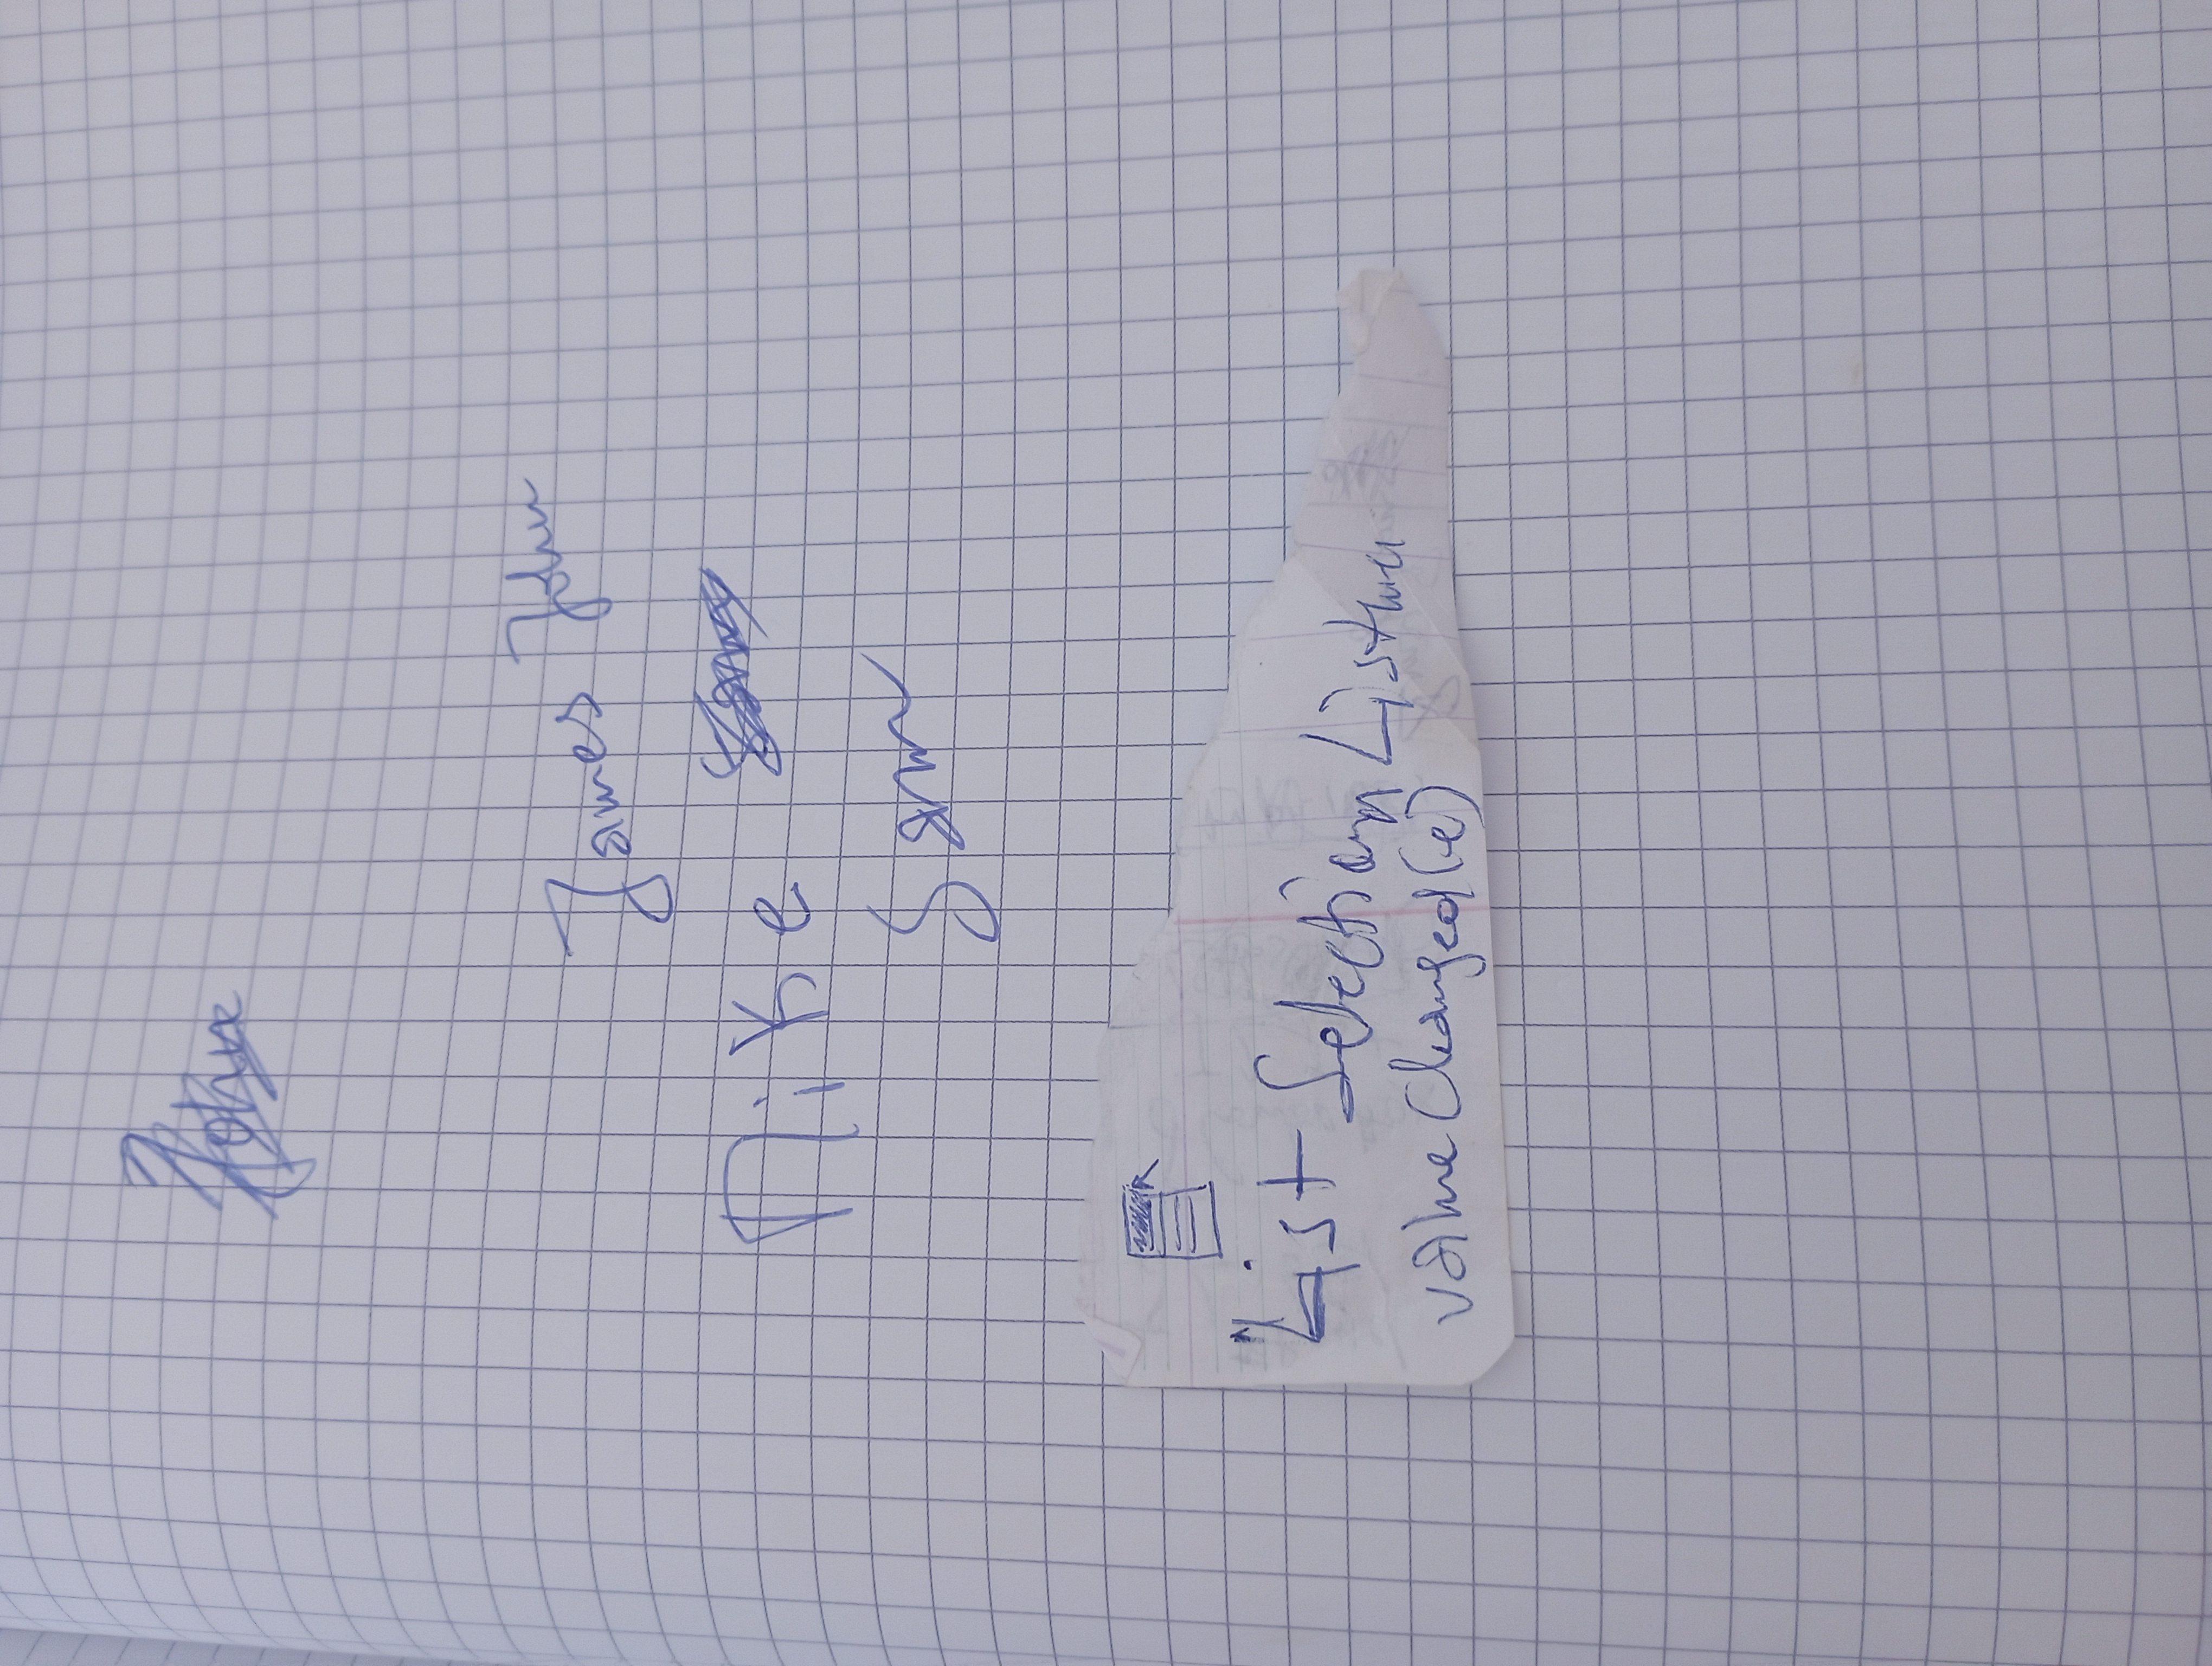 John
James John
Mike Sam
Sam
List Selection Listener
valueChanged(e)